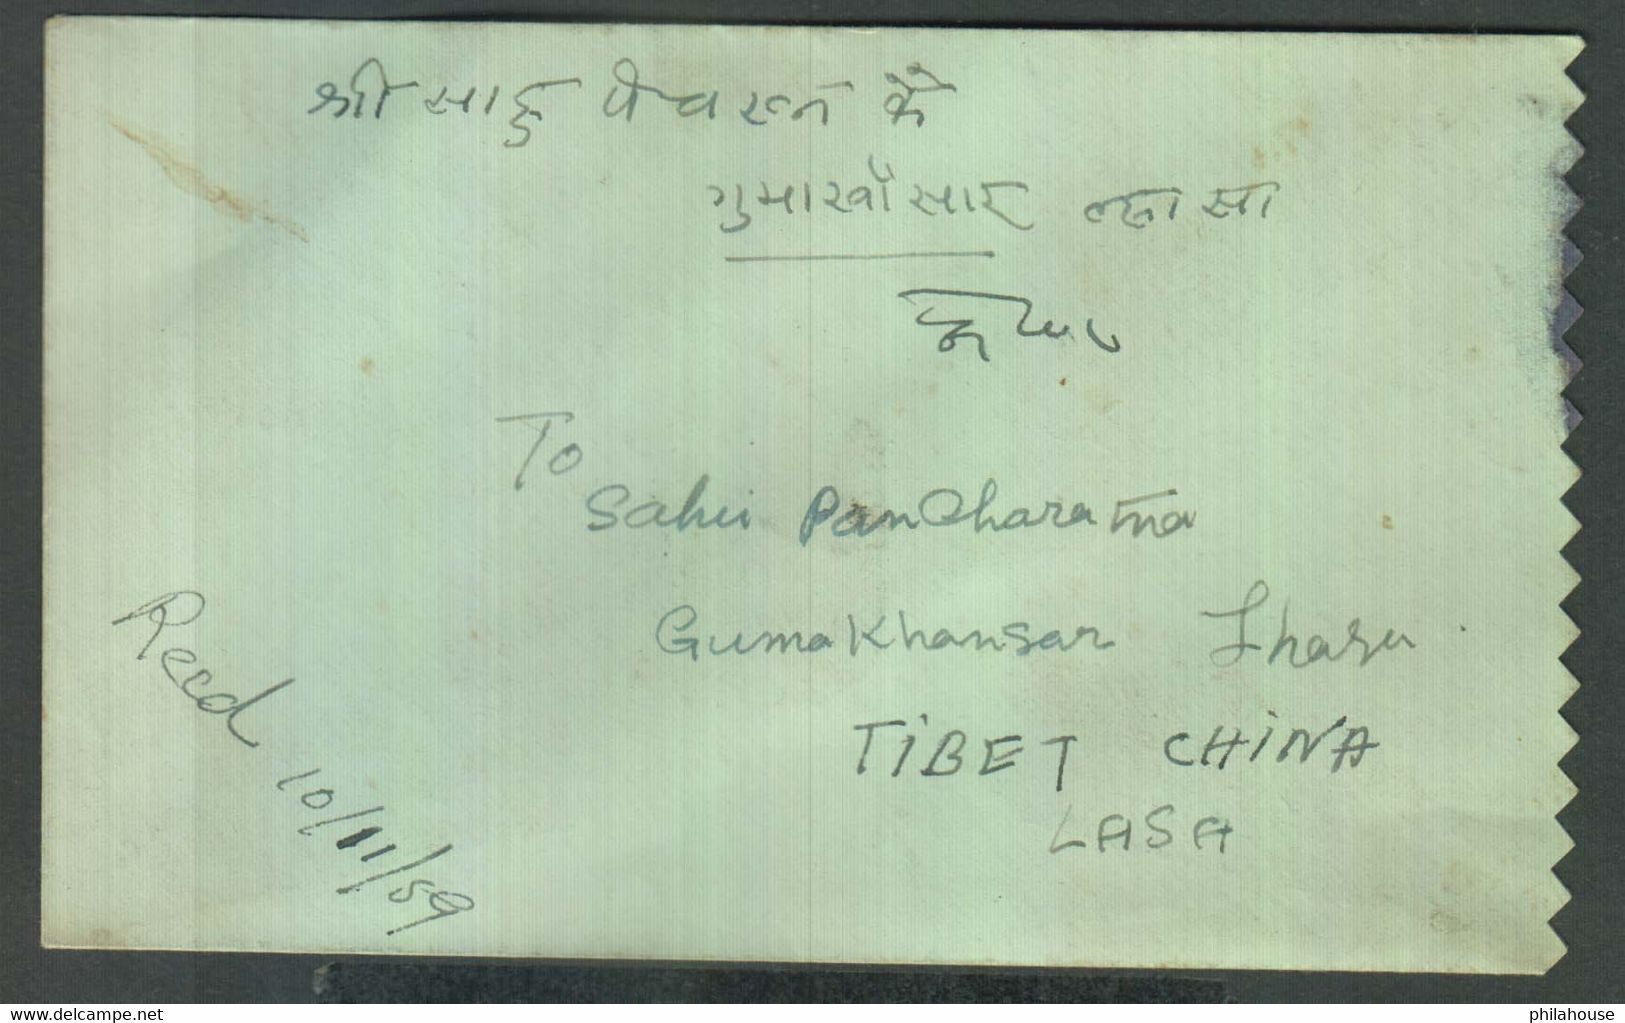 श्री साहु पंचरत्न के
गुमाखाँसार ल्हासा
To
Sahu Pancharatna
Gumakhansar Lhasa
TIBET CHINA
LASA
Recd 10/11/59
www.delcampe.net
philahouse